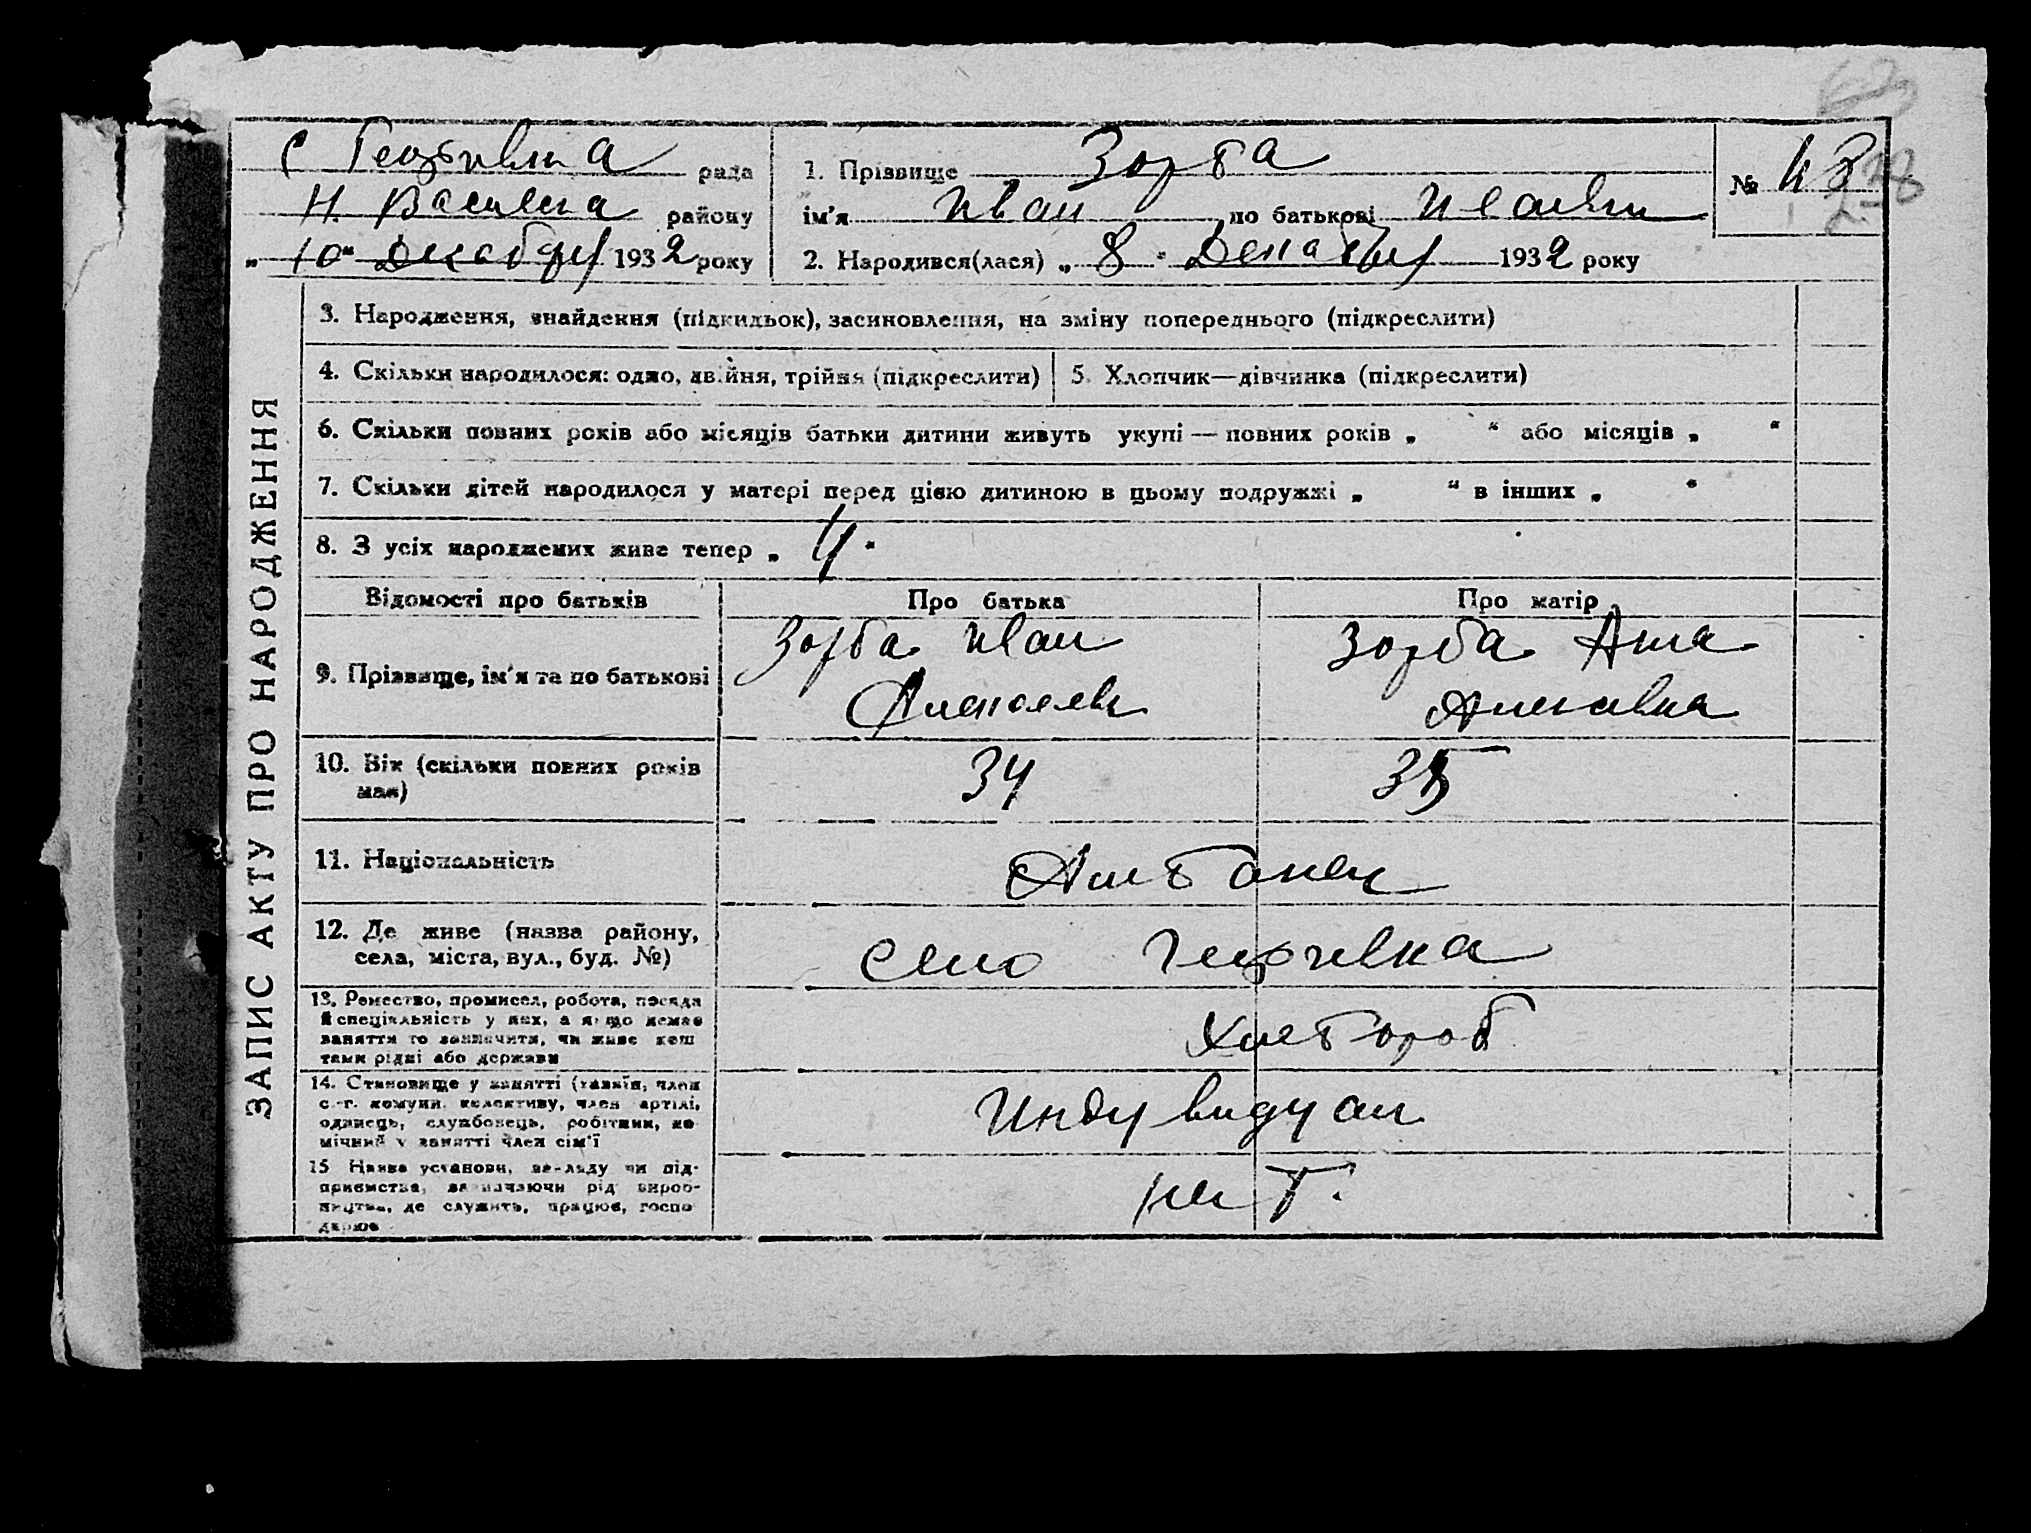 ЗАПИС АКТУ ПРО НАРОДЖЕННЯ
С Георгивка рада
Н. Василька району
„ 10 “ Декабря 1932 року
1. Прізвище Зорба
ім'я Иван по батькові
2. Народився(лася) „ 8 “ Декабря 1932 року
№ 43
3. Народження, знайдення (підкидьок), засиновлення, на зміну попереднього (підкреслити)
4. Скільки народилося: одно, двійня, трійня (підкреслити)
5. Хлопчик—дівчинка (підкреслити)
6. Скільки повних років або місяців батьки дитини живуть укупі — повних років „ “ або місяців „ “
7. Скільки дітей народилося у матері перед цією дитиною в цьому подружжі „ “ в інших „ “
8. З усіх народжених живе тепер „ 4 “
Відомості про батьків Про батька Про матір
9. Прізвище, ім'я та по батькові
Зорба Иван
Алексеев
Зорба Анна
10. Вік (скільки повних років
має)
34 35
11. Національність
Албанец
12. Де живе (назва району,
села, міста, вул., буд. №)
село Георгивка
13. Ремество, промисел, робота, посада
й спеціяльність у них, а якщо немає
заняття то зазначити, чи живе кош
тами рідні або держави
Хлебороб
14. Становище у занятті (хазяїн, член
с.-г. комуни, колективу, член артілі,
одинець, службовець, робітник, по
мічний у занятті член сім'ї
Индувидуал
15 Назва установи, закладу чи під-
приємства, зазначаючи рід вироб-
ництва, де служить, працює, госпо
дарює
нет.